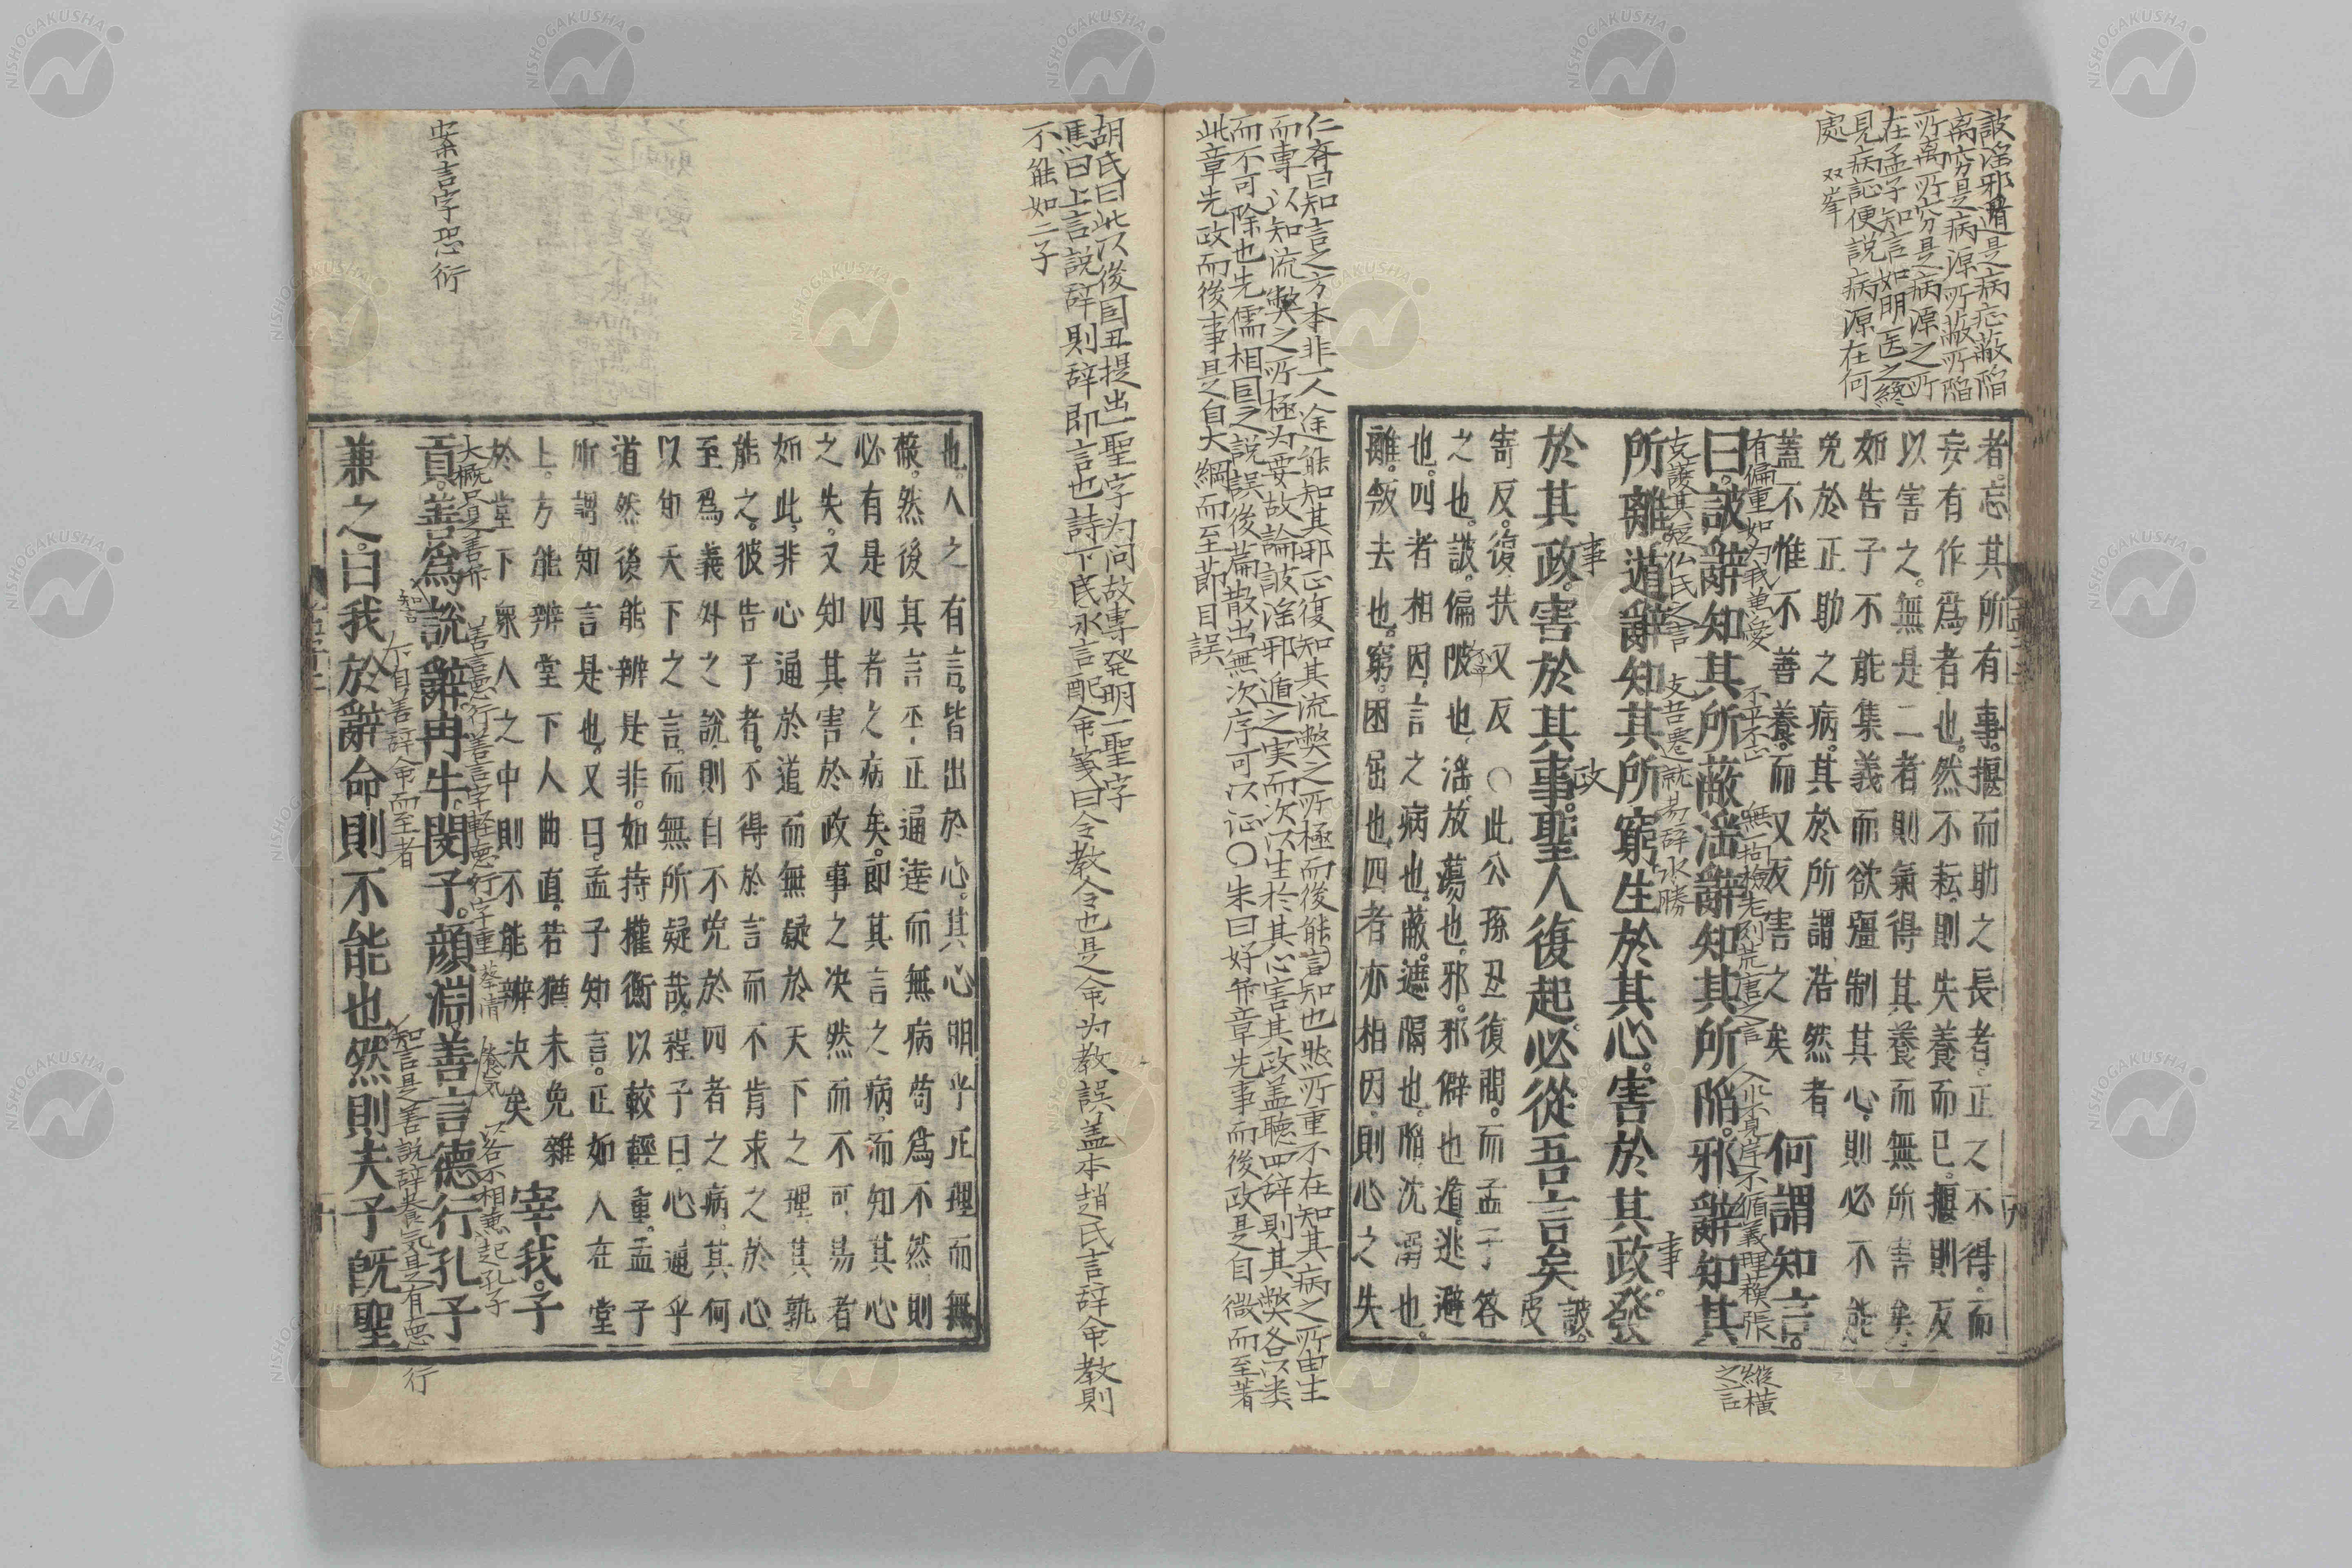 詖淫邪遁是病症蔽陷
離窮是病源所蔽所陷
所离所窮是病源之所
在孟子知言如明医之纔
見病証便説病源在何
處 双峯
者忘其所有事。揠而助之長者。正之不得。而
妄有作爲者也。然不耘。則失養而已。揠則反
以害之。無是二者。則氣得其養而無所害矣。
如告子不能集義而欲彊制其心。則必不能
免於正助之病。其於所謂浩然者
蓋不惟不善養。而又反害之矣 何謂知言。
有偏重如为我兼愛 不平不正 無一拘檢老列荒唐之言 不循義理橫張
縱横
之言
曰。詖辭知其所蔽。淫辭知其所陷。邪辭知其
支護其短仏氏之言
所離。遁辭知其所窮。生於其心。害於其政。發
事
事 政
於其政。害於其事。聖人復起。必從吾言矣 詖。
彼
寄反。復扶又反 〇此公孫丑復問。而孟子答
之也。詖。偏陂也。淫。放蕩也。邪。邪僻也。遁。逃避
也。四者相因。言之病也。蔽。遮隔也。陷。沈溺也。
離。叛去也。窮。困屈也。四者亦相因。則心之失
仁斉曰知言之方本非一人途能知其邪正復知其流弊之所極而後能言知也然所重不在知其病之所由生
而專以知流弊之所極为要故論詖淫邪遁之実而次以生於其心害其政盖聴四辞則其弊各以类
而不可除也先儒相因之説誤後篇散出無次序可以证〇朱曰好弁章先事而後政是自微而至著
此章先政而後事是自大綱而至節目誤
胡氏曰此以後因丑提出一聖字为问故專発明一聖字
馮曰上言説辞則辞即言也詩下民永言配命箋曰令教令也是命为教誤盖本趙氏言辞命教則
不能如二子
也。人之有言。皆出於心。其心明乎正理而無
蔽。然後其言平正通達而無病。苟爲不然。則
必有是四者之病矣。即其言之病。而知其心
之失。又知其害於政事之決然而不可易者
如此。非心通於道。而無疑於天下之理。其孰
能之。彼告子者。不得於言而不肯求之於心。
至爲義外之説。則自不免於四者之病。其何
以知天下之言。而無所疑哉。程子曰。心通乎
道。然後能辨是非。如持權衡以較輕重。孟子
所謂知言是也。又曰。孟子知言。正如人在堂
上。方能辨堂下人曲直。若猶未免雜
於堂下衆人之中。則不能辨決矣 宰我。子
大概是善弁 善言悳行善言字軽悳行字重 蔡清 養気 以各不相兼起孔子
貢。善爲說辭。冉牛。閔子。顔淵。善言德行。孔子
知言 个自善辞命而至者 知言是善説辞養気是有悳行
兼之。曰我於辭命則不能也。然則夫子旣聖
案言字恐衍